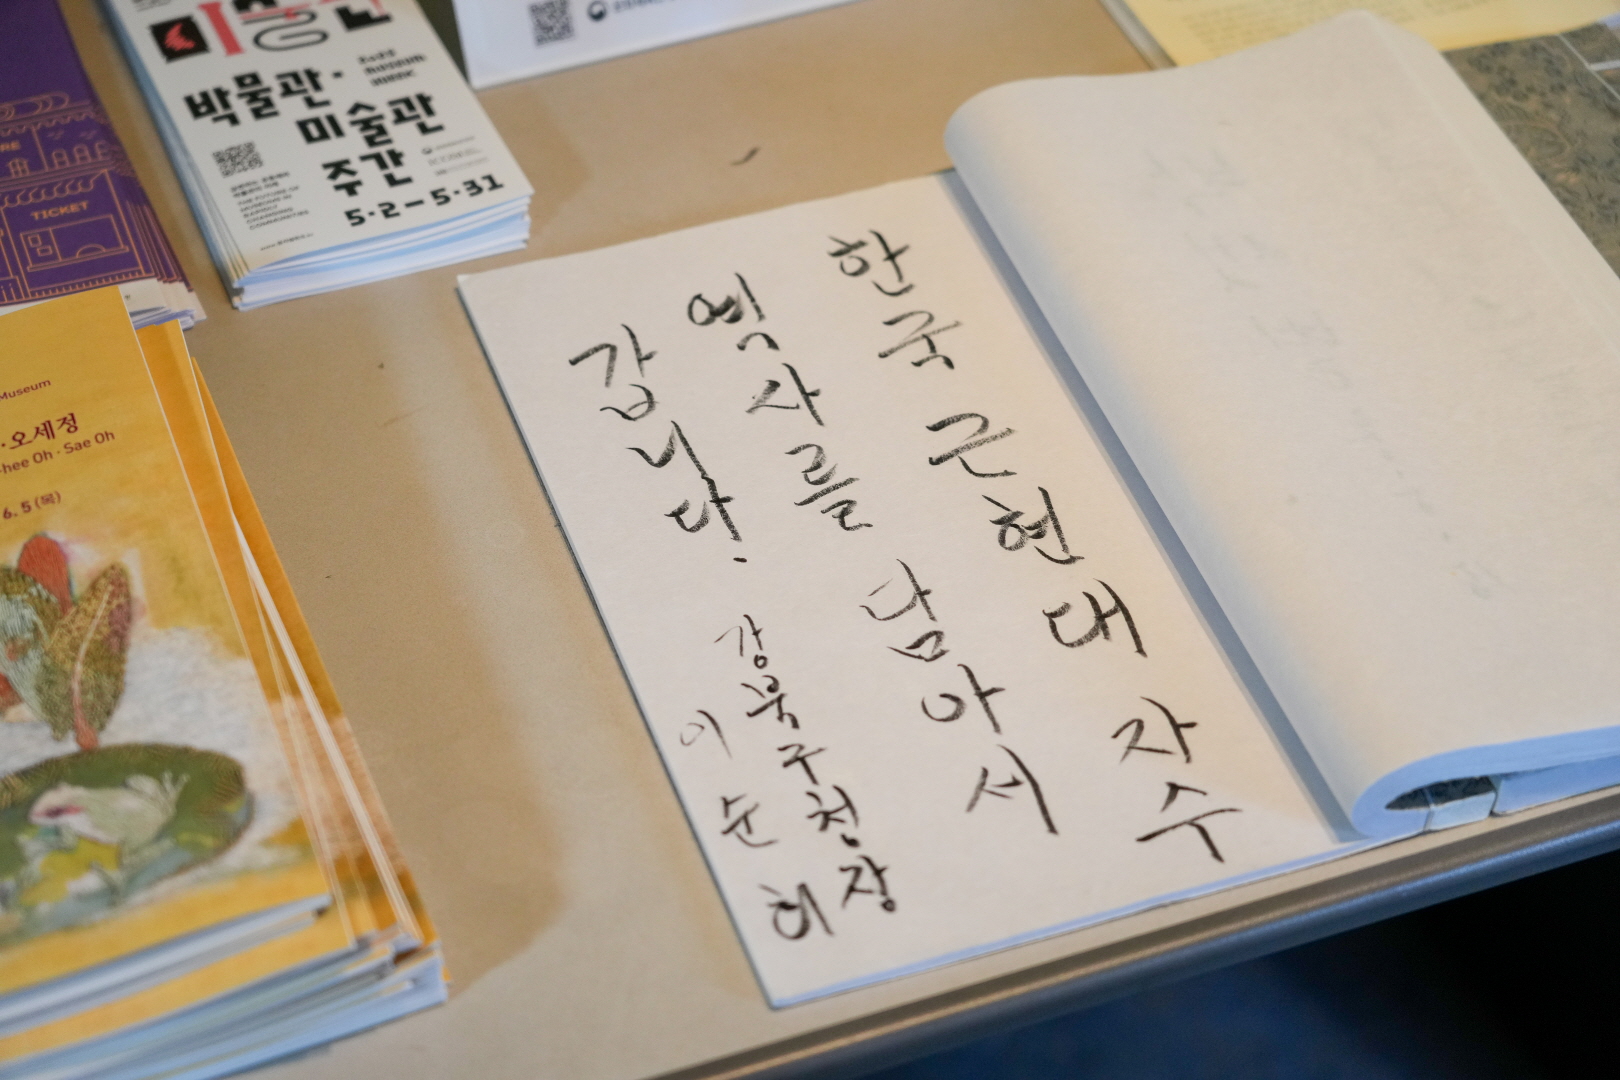 한국 근현대 자수
역사를 담아서
갑니다.
강북구청장
이순희
박물관·
미술관
주간
5·2—5·31
THE FUTURE OF
MUSEUMS IN
RAPIDLY
CHANGING
COMMUNITIES
TICKET
Museum
·오세정
hee Oh · Sae Oh
6. 5 (목)